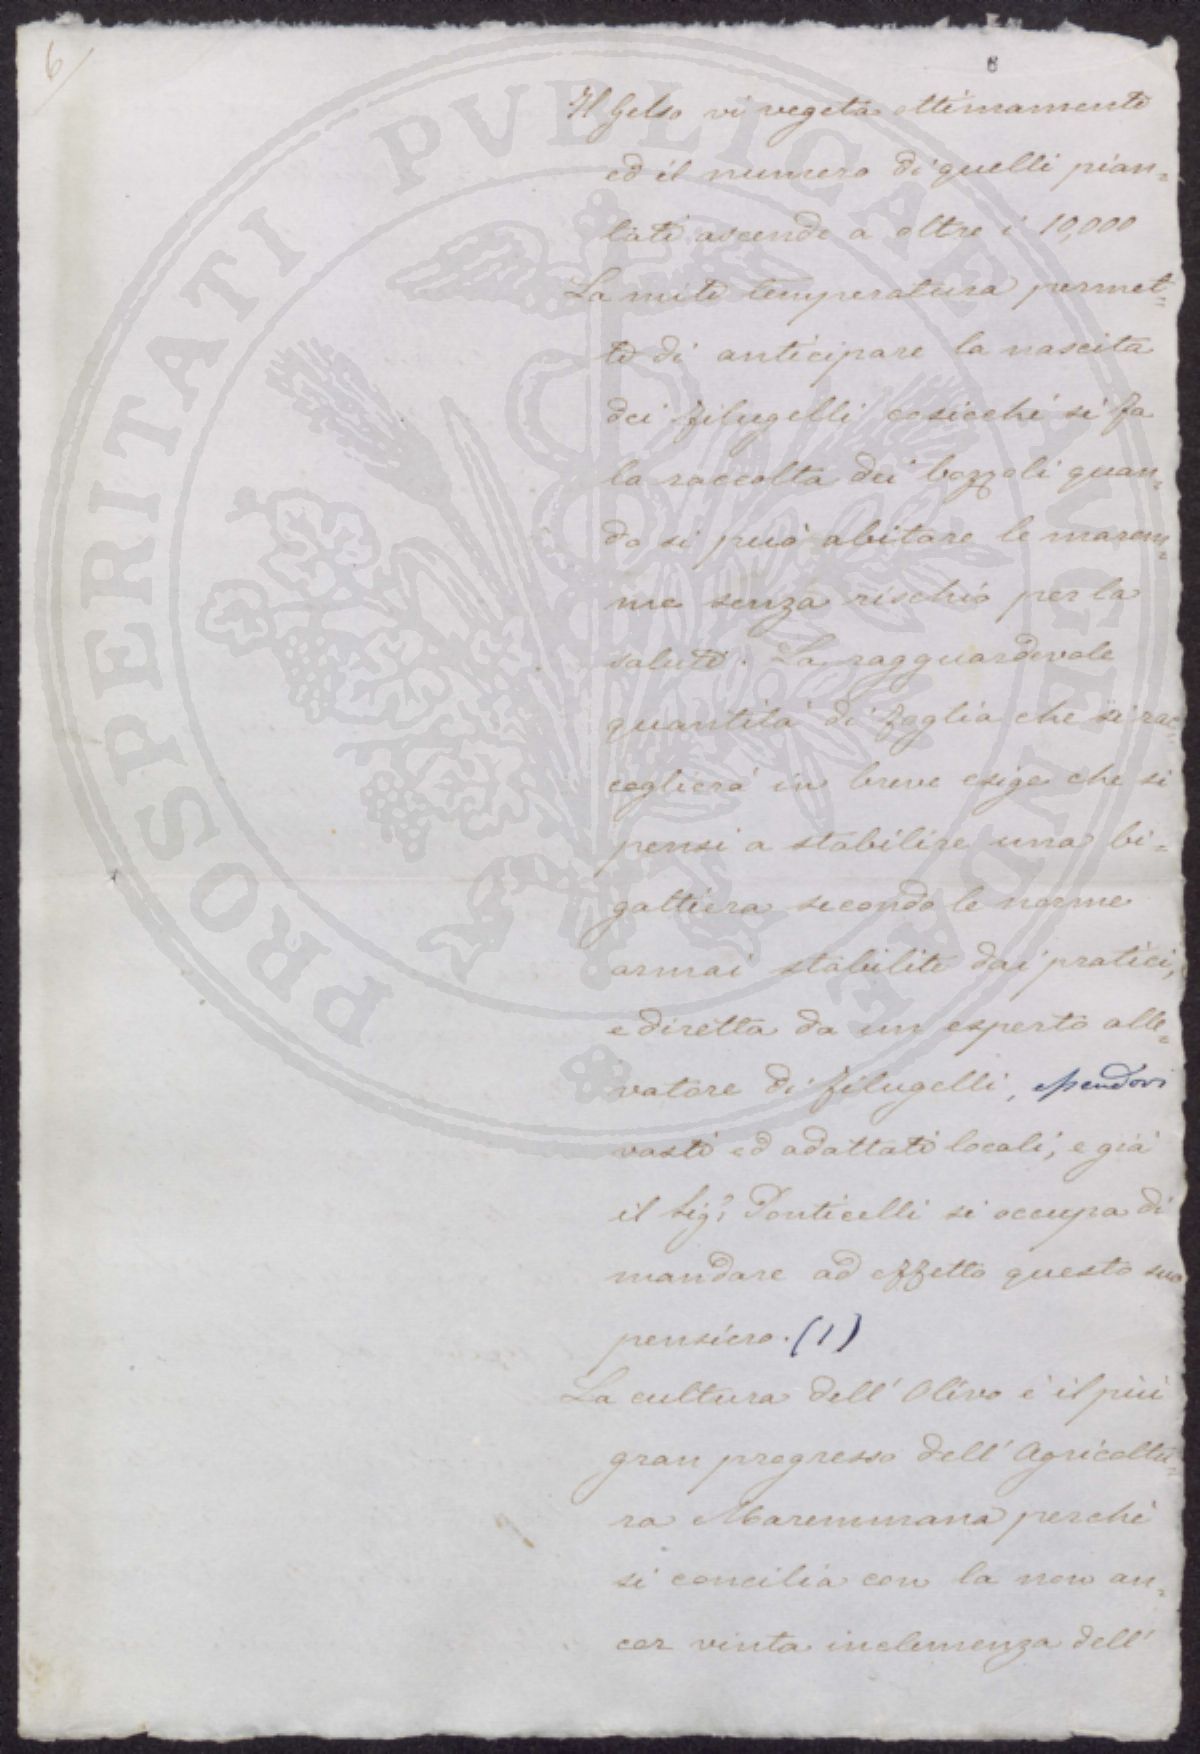 6
6
Il Gelso vi vegeta ottimamente
ed il numero di quelli pian=
tati ascende a oltre i 10,000
La mite temperatura permet=
te di anticipare la nascita
dei filugelli cosicché si fa
la raccolta dei bozzoli quan=
do si può abitare le marem=
me senza rischio per la
salute. La ragguardevole
quantità di foglia che si rac=
coglierà in breve esige che si
pensi a stabilire una bi=
gattiera secondo le norme
ormai stabilite dai pratici,
e diretta da un esperto alle=
vatore di filugelli, essendovi
vasti ed adattati locali, e già
il Sig.r Ponticelli si occupa di
mandare ad effetto questo suo
pensiero. (1)
La cultura dell' Olivo è il più
gran progresso dell' Agricoltu=
ra Maremmana perchè
si concilia con la non an=
cor vinta inclemenza dell'
PROSPERITATI PVBLICAE AVGENDAE